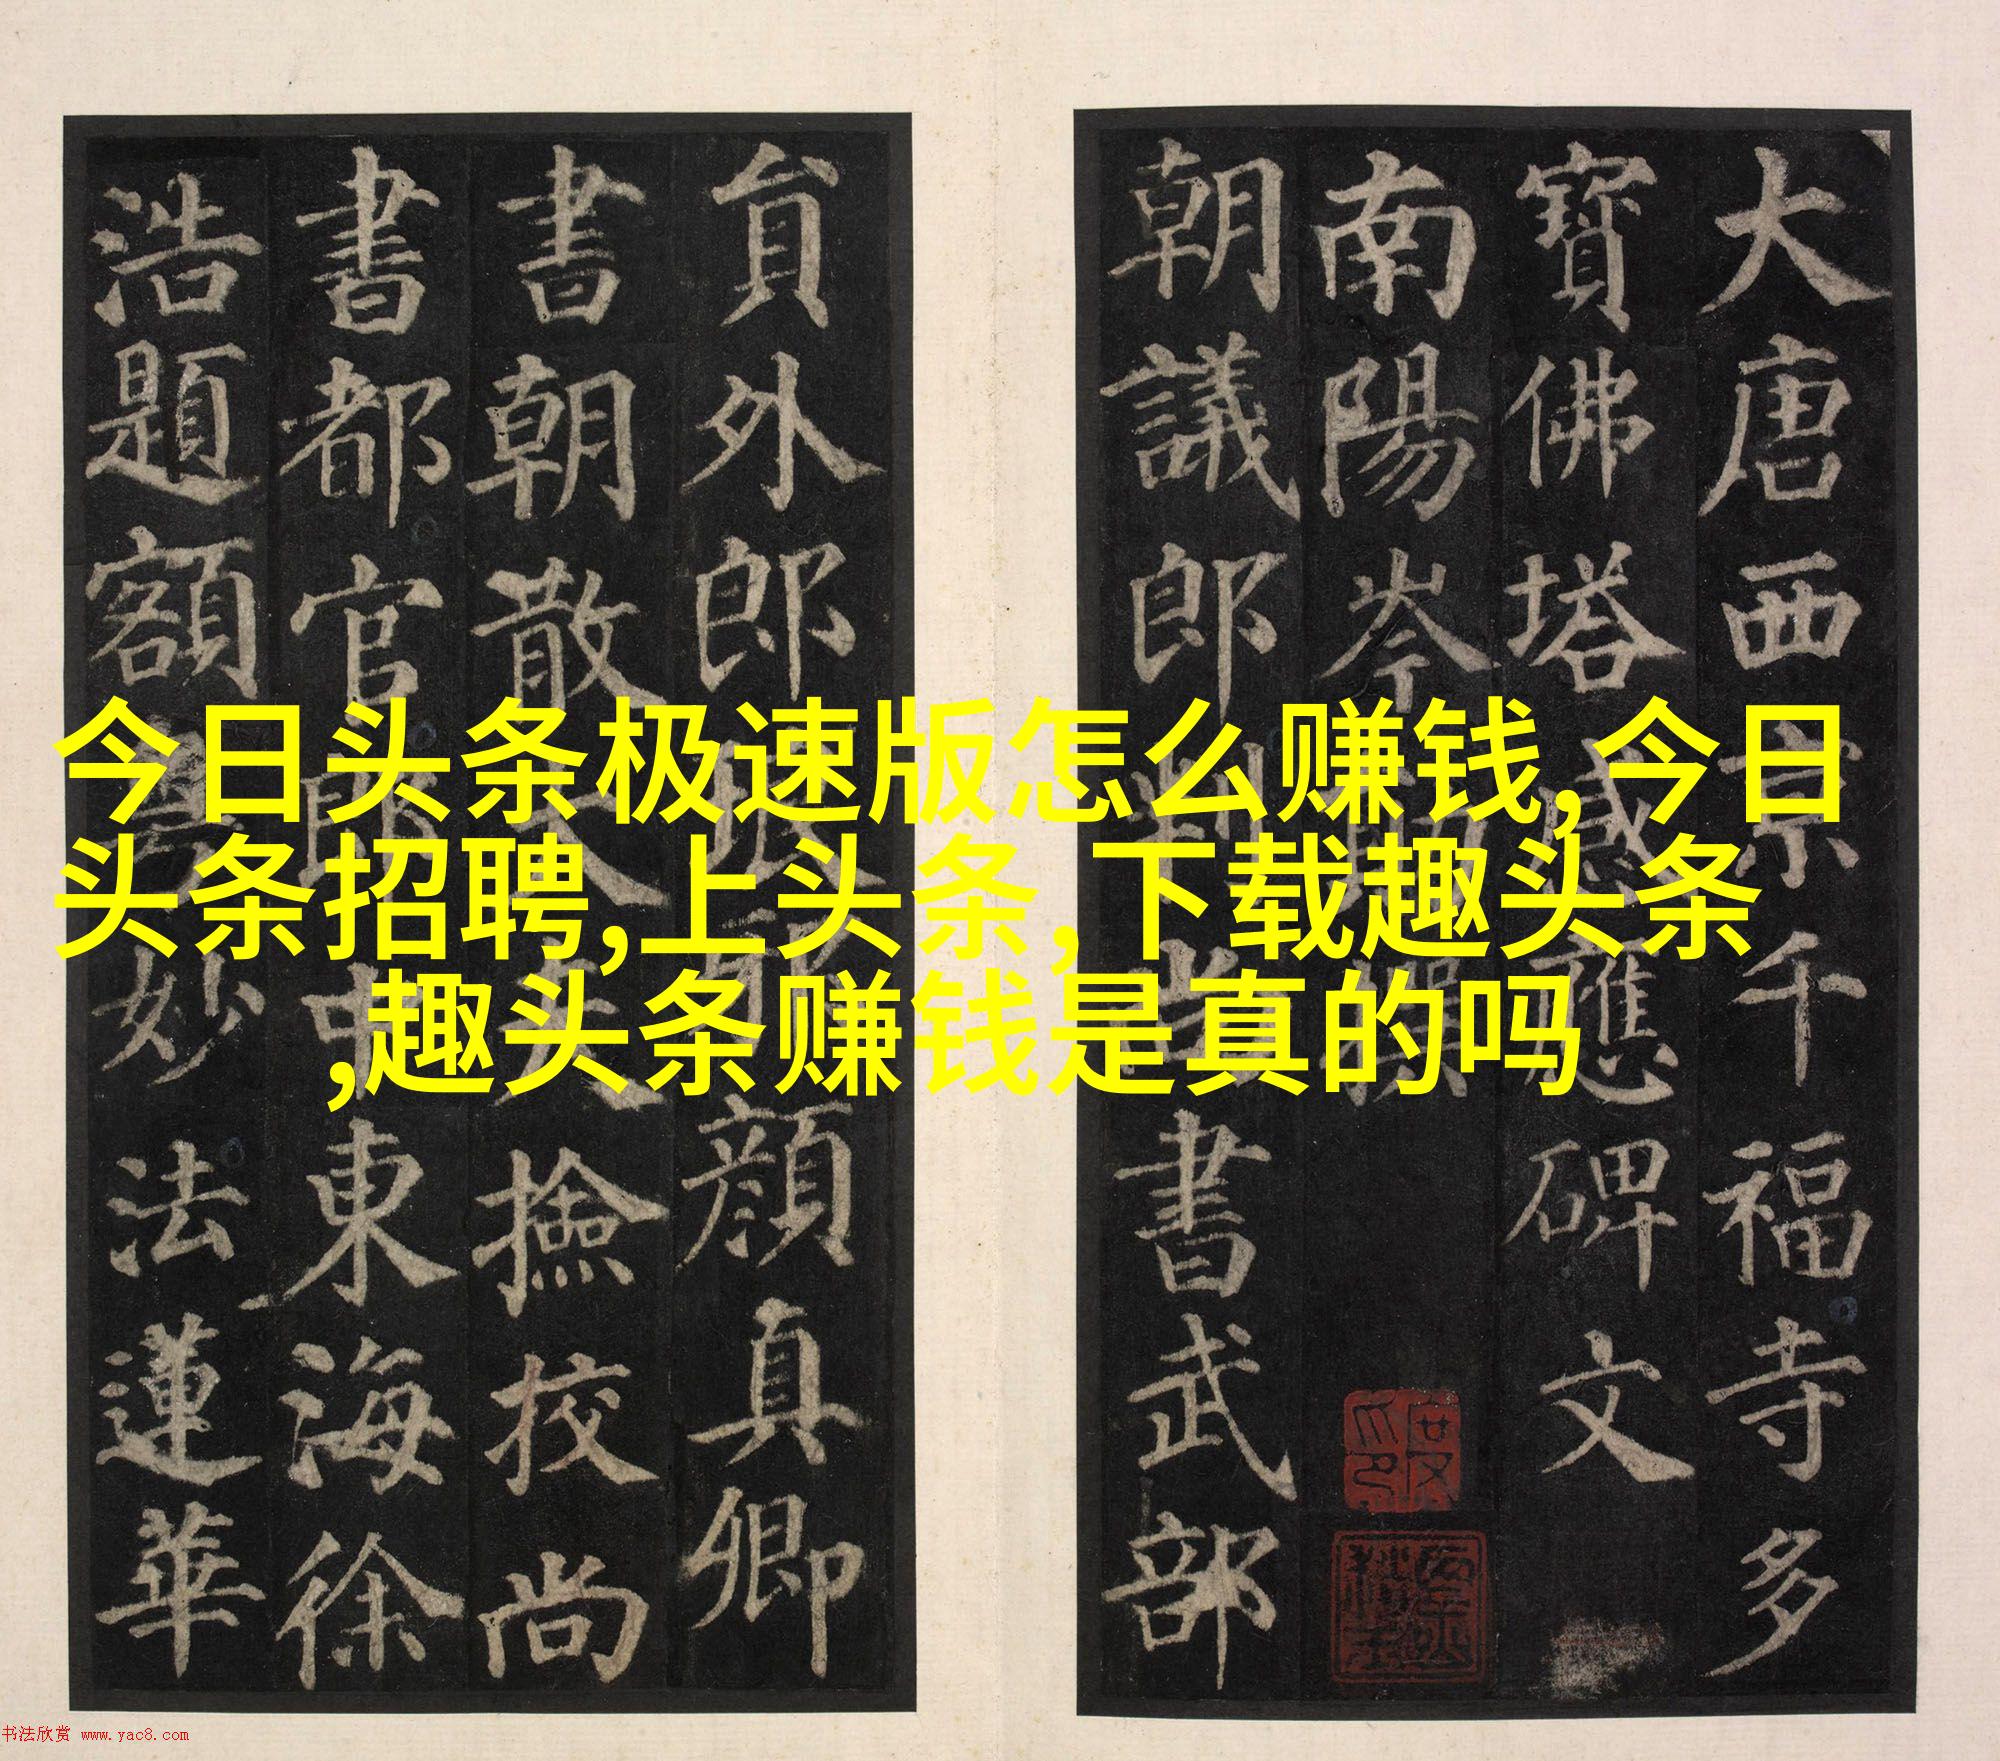 今日头条极速版怎么赚钱,今日
头条招聘,上头条,下载趣头条
,趣头条赚钱是真的吗
大唐西京千福寺多
寶佛塔感應碑文
南陽岑撰
朝議郎判尚書武部
貟外郎顏真卿
書朝散大夫撿校尚
書都官郎中東海徐
浩題額妙法蓮華
书法欣赏 www.yac8.com